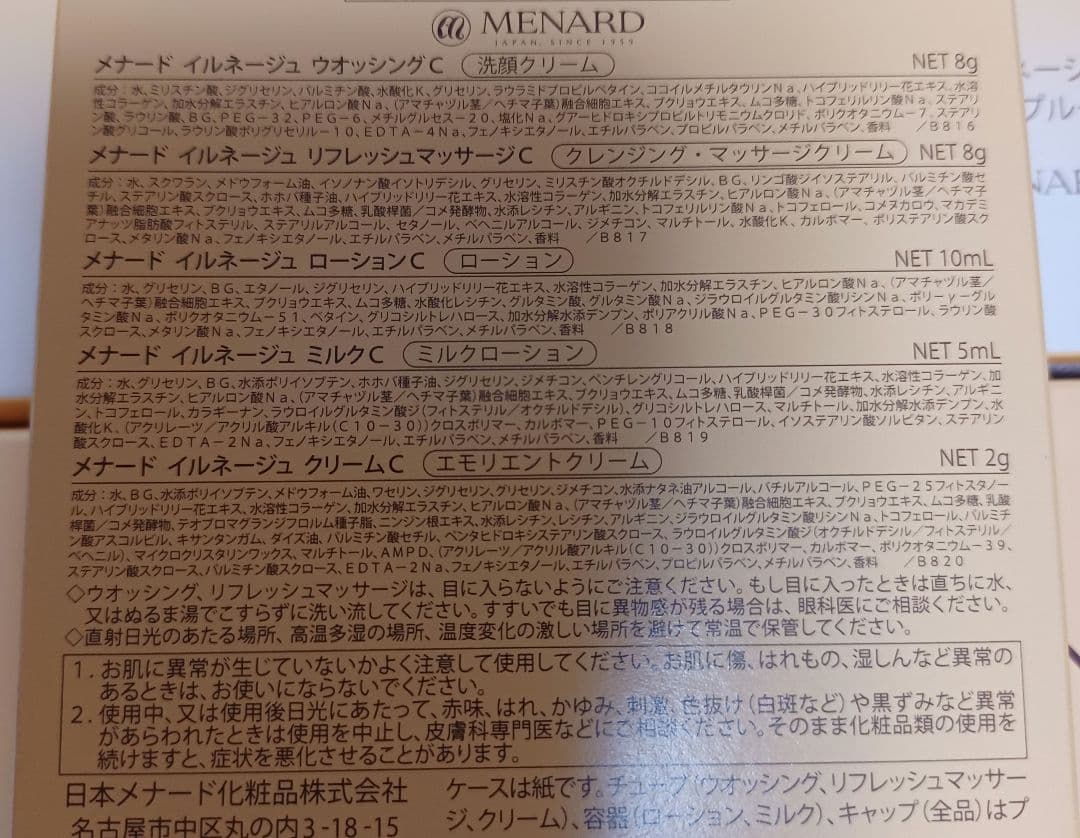 MENARD
JAPAN, SINCE 1959
メナード イルネージュ ウオッシングC 洗顔クリーム NET 8g
成分：水、ミリスチン酸、ジグリセリン、パルミチン酸、水酸化K、グリセリン、ラウラミドプロピルベタイン、ココイルメチルタウリンNa、ハイブリッドリリー花エキス、水溶
性コラーゲン、加水分解エラスチン、ヒアルロン酸Na、(アマチャヅル茎／ヘチマ子葉)融合細胞エキス、ブクリョウエキス、ムコ多糖、トコフェルリン酸Na、ステアリ
ン酸、ラウリン酸、BG、PEG-32、PEG-6、メチルグルセス-20、塩化Na、グアーヒドロキシプロピルトリモニウムクロリド、ポリクオタニウム-7、ステアリ
ン酸グリコール、ラウリン酸ポリグリセリル-10、EDTA-4Na、フェノキシエタノール、エチルパラベン、プロピルパラベン、メチルパラベン、香料 ／B816
メナード イルネージュ リフレッシュマッサージC クレンジング・マッサージクリーム NET 8g
成分：水、スクワラン、メドウフォーム油、イソノナン酸イソトリデシル、グリセリン、ミリスチン酸オクチルドデシル、BG、リンゴ酸ジイソステアリル、パルミチン酸セ
チル、ステアリン酸スクロース、ホホバ種子油、ハイブリッドリリー花エキス、水溶性コラーゲン、加水分解エラスチン、ヒアルロン酸Na、(アマチャヅル茎／ヘチマ子
葉)融合細胞エキス、ブクリョウエキス、ムコ多糖、乳酸桿菌／コメ発酵物、水添レシチン、アルギニン、トコフェルリン酸Na、トコフェロール、コメヌカロウ、マカデミ
アナッツ脂肪酸フィトステリル、ステアリルアルコール、セタノール、ベヘニルアルコール、ジメチコン、マルチトール、水酸化K、カルボマー、ポリステアリン酸スク
ロース、メタリン酸Na、フェノキシエタノール、エチルパラベン、メチルパラベン、香料 ／B817
メナード イルネージュ ローションC ローション NET 10mL
成分：水、グリセリン、BG、エタノール、ジグリセリン、ハイブリッドリリー花エキス、水溶性コラーゲン、加水分解エラスチン、ヒアルロン酸Na、(アマチャヅル茎／
ヘチマ子葉)融合細胞エキス、ブクリョウエキス、ムコ多糖、水酸化レシチン、グルタミン酸、グルタミン酸Na、ジラウロイルグルタミン酸リシンNa、ポリ-γ-グル
タミン酸Na、ポリクオタニウム-51、ベタイン、グリコシルトレハロース、加水分解水添デンプン、ポリアクリル酸Na、PEG-30フィトステロール、ラウリン酸
スクロース、メタリン酸Na、フェノキシエタノール、エチルパラベン、メチルパラベン、香料 ／B818
メナード イルネージュ ミルクC ミルクローション NET 5mL
成分：水、グリセリン、BG、水添ポリイソブテン、ホホバ種子油、ジグリセリン、ジメチコン、ペンチレングリコール、ハイブリッドリリー花エキス、水溶性コラーゲン、加
水分解エラスチン、ヒアルロン酸Na、(アマチャヅル茎／ヘチマ子葉)融合細胞エキス、ブクリョウエキス、ムコ多糖、乳酸桿菌／コメ発酵物、水添レシチン、アルギニ
ン、トコフェロール、カラギーナン、ラウロイルグルタミン酸ジ(フィトステリル／オクチルドデシル)、グリコシルトレハロース、マルチトール、加水分解水添デンプン、水
酸化K、(アクリレーツ／アクリル酸アルキル(C10-30))クロスポリマー、カルボマー、PEG-10フィトステロール、イソステアリン酸ソルビタン、ステアリン
酸スクロース、EDTA-2Na、フェノキシエタノール、エチルパラベン、メチルパラベン、香料 ／B819
メナード イルネージュ クリームC エモリエントクリーム NET 2g
成分：水、BG、水添ポリイソブテン、メドウフォーム油、ワセリン、ジグリセリン、グリセリン、ジメチコン、水添ナタネ油アルコール、バチルアルコール、PEG-25フィトスタノー
ル、ハイブリッドリリー花エキス、水溶性コラーゲン、加水分解エラスチン、ヒアルロン酸Na、(アマチャヅル茎／ヘチマ子葉)融合細胞エキス、ブクリョウエキス、ムコ多糖、乳酸
桿菌／コメ発酵物、テオブロマグランジフロルム種子脂、ニンジン根エキス、水添レシチン、レシチン、アルギニン、ジラウロイルグルタミン酸リシンNa、トコフェロール、パルミチ
ン酸アスコルビル、キサンタンガム、ダイズ油、パルミチン酸セチル、ペンタヒドロキシステアリン酸スクロース、ラウロイルグルタミン酸ジ(オクチルドデシル／フィトステリル／
ベヘニル)、マイクロクリスタリンワックス、マルチトール、AMPD、(アクリレーツ／アクリル酸アルキル(C10-30))クロスポリマー、カルボマー、ポリクオタニウム-39、
ステアリン酸スクロース、パルミチン酸スクロース、EDTA-2Na、フェノキシエタノール、エチルパラベン、プロピルパラベン、メチルパラベン、香料 ／B820
◇ウオッシング、リフレッシュマッサージは、目に入らないようにご注意ください。もし目に入ったときは直ちに水、
又はぬるま湯でこすらずに洗い流してください。すすいでも目に異物感が残る場合は、眼科医にご相談ください。
◇直射日光のあたる場所、高温多湿の場所、温度変化の激しい場所を避けて常温で保管してください。
1. お肌に異常が生じていないかよく注意して使用してください。お肌に傷、はれもの、湿しんなど異常の
あるときは、お使いにならないでください。
2. 使用中、又は使用後日光にあたって、赤味、はれ、かゆみ、刺激、色抜け(白斑など)や黒ずみなど異常
があらわれたときは使用を中止し、皮膚科専門医などにご相談ください。そのまま化粧品類の使用を
続けますと、症状を悪化させることがあります。
日本メナード化粧品株式会社
名古屋市中区丸の内3-18-15
ケースは紙です。チューブ(ウオッシング、リフレッシュマッサー
ジ、クリーム)、容器(ローション、ミルク)、キャップ(全品)はプ